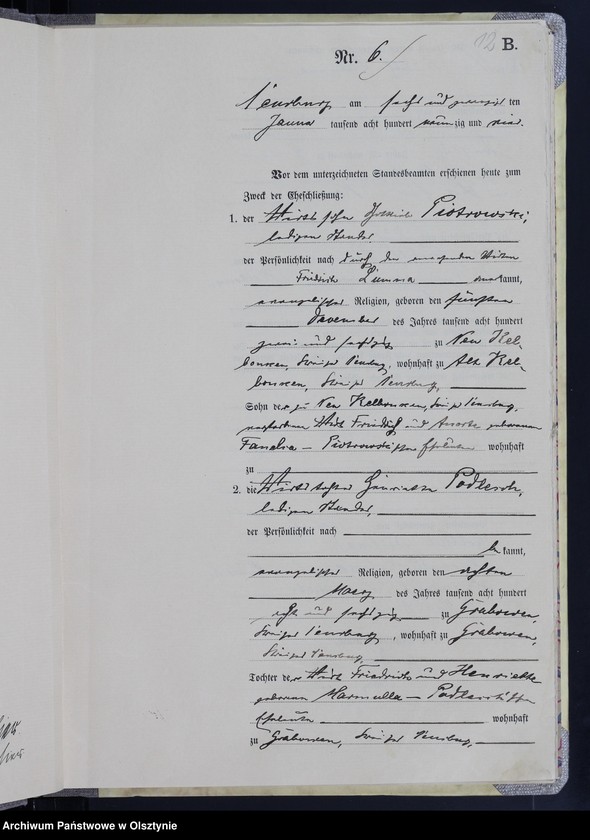 12 B.
Nr. 6.
Sensburg am sechs und zwanzig ten
Januar tausend acht hundert neunzig und vier.
Vor dem unterzeichneten Standesbeamten erschienen heute zum
Zweck der Eheschließung:
1. der Wirthssohn Piotrowski,
ledigen Standes,
der Persönlichkeit nach durch den
Friedrich kannt,
evangelischer Religion, geboren den fünften
Dezember des Jahres tausend acht hundert
zwei und sechszig zu Neu Kel-
bonken, Kreises Sensburg, wohnhaft zu Alt Kel-
bonken, Kreises Sensburg,
Sohn der zu Neu Kelbonken, Kreises Sensburg,
verstorbenen Wirth Friedrich und geborenen
Piotrowskischen Eheleute wohnhaft
zu
2. die Wirthstochter Henriette Podlesch,
ledigen Standes,
der Persönlichkeit nach
be kannt,
evangelischer Religion, geboren den achten
März des Jahres tausend acht hundert
acht und sechszig zu Grabowen,
Kreises Sensburg, wohnhaft zu Grabowen,
Kreises Sensburg,
Tochter der Wirth Friedrich und Henriette
geborenen Podleschschen
Eheleute wohnhaft
zu Grabowen, Kreises Sensburg,
Archiwum Państwowe w Olsztynie